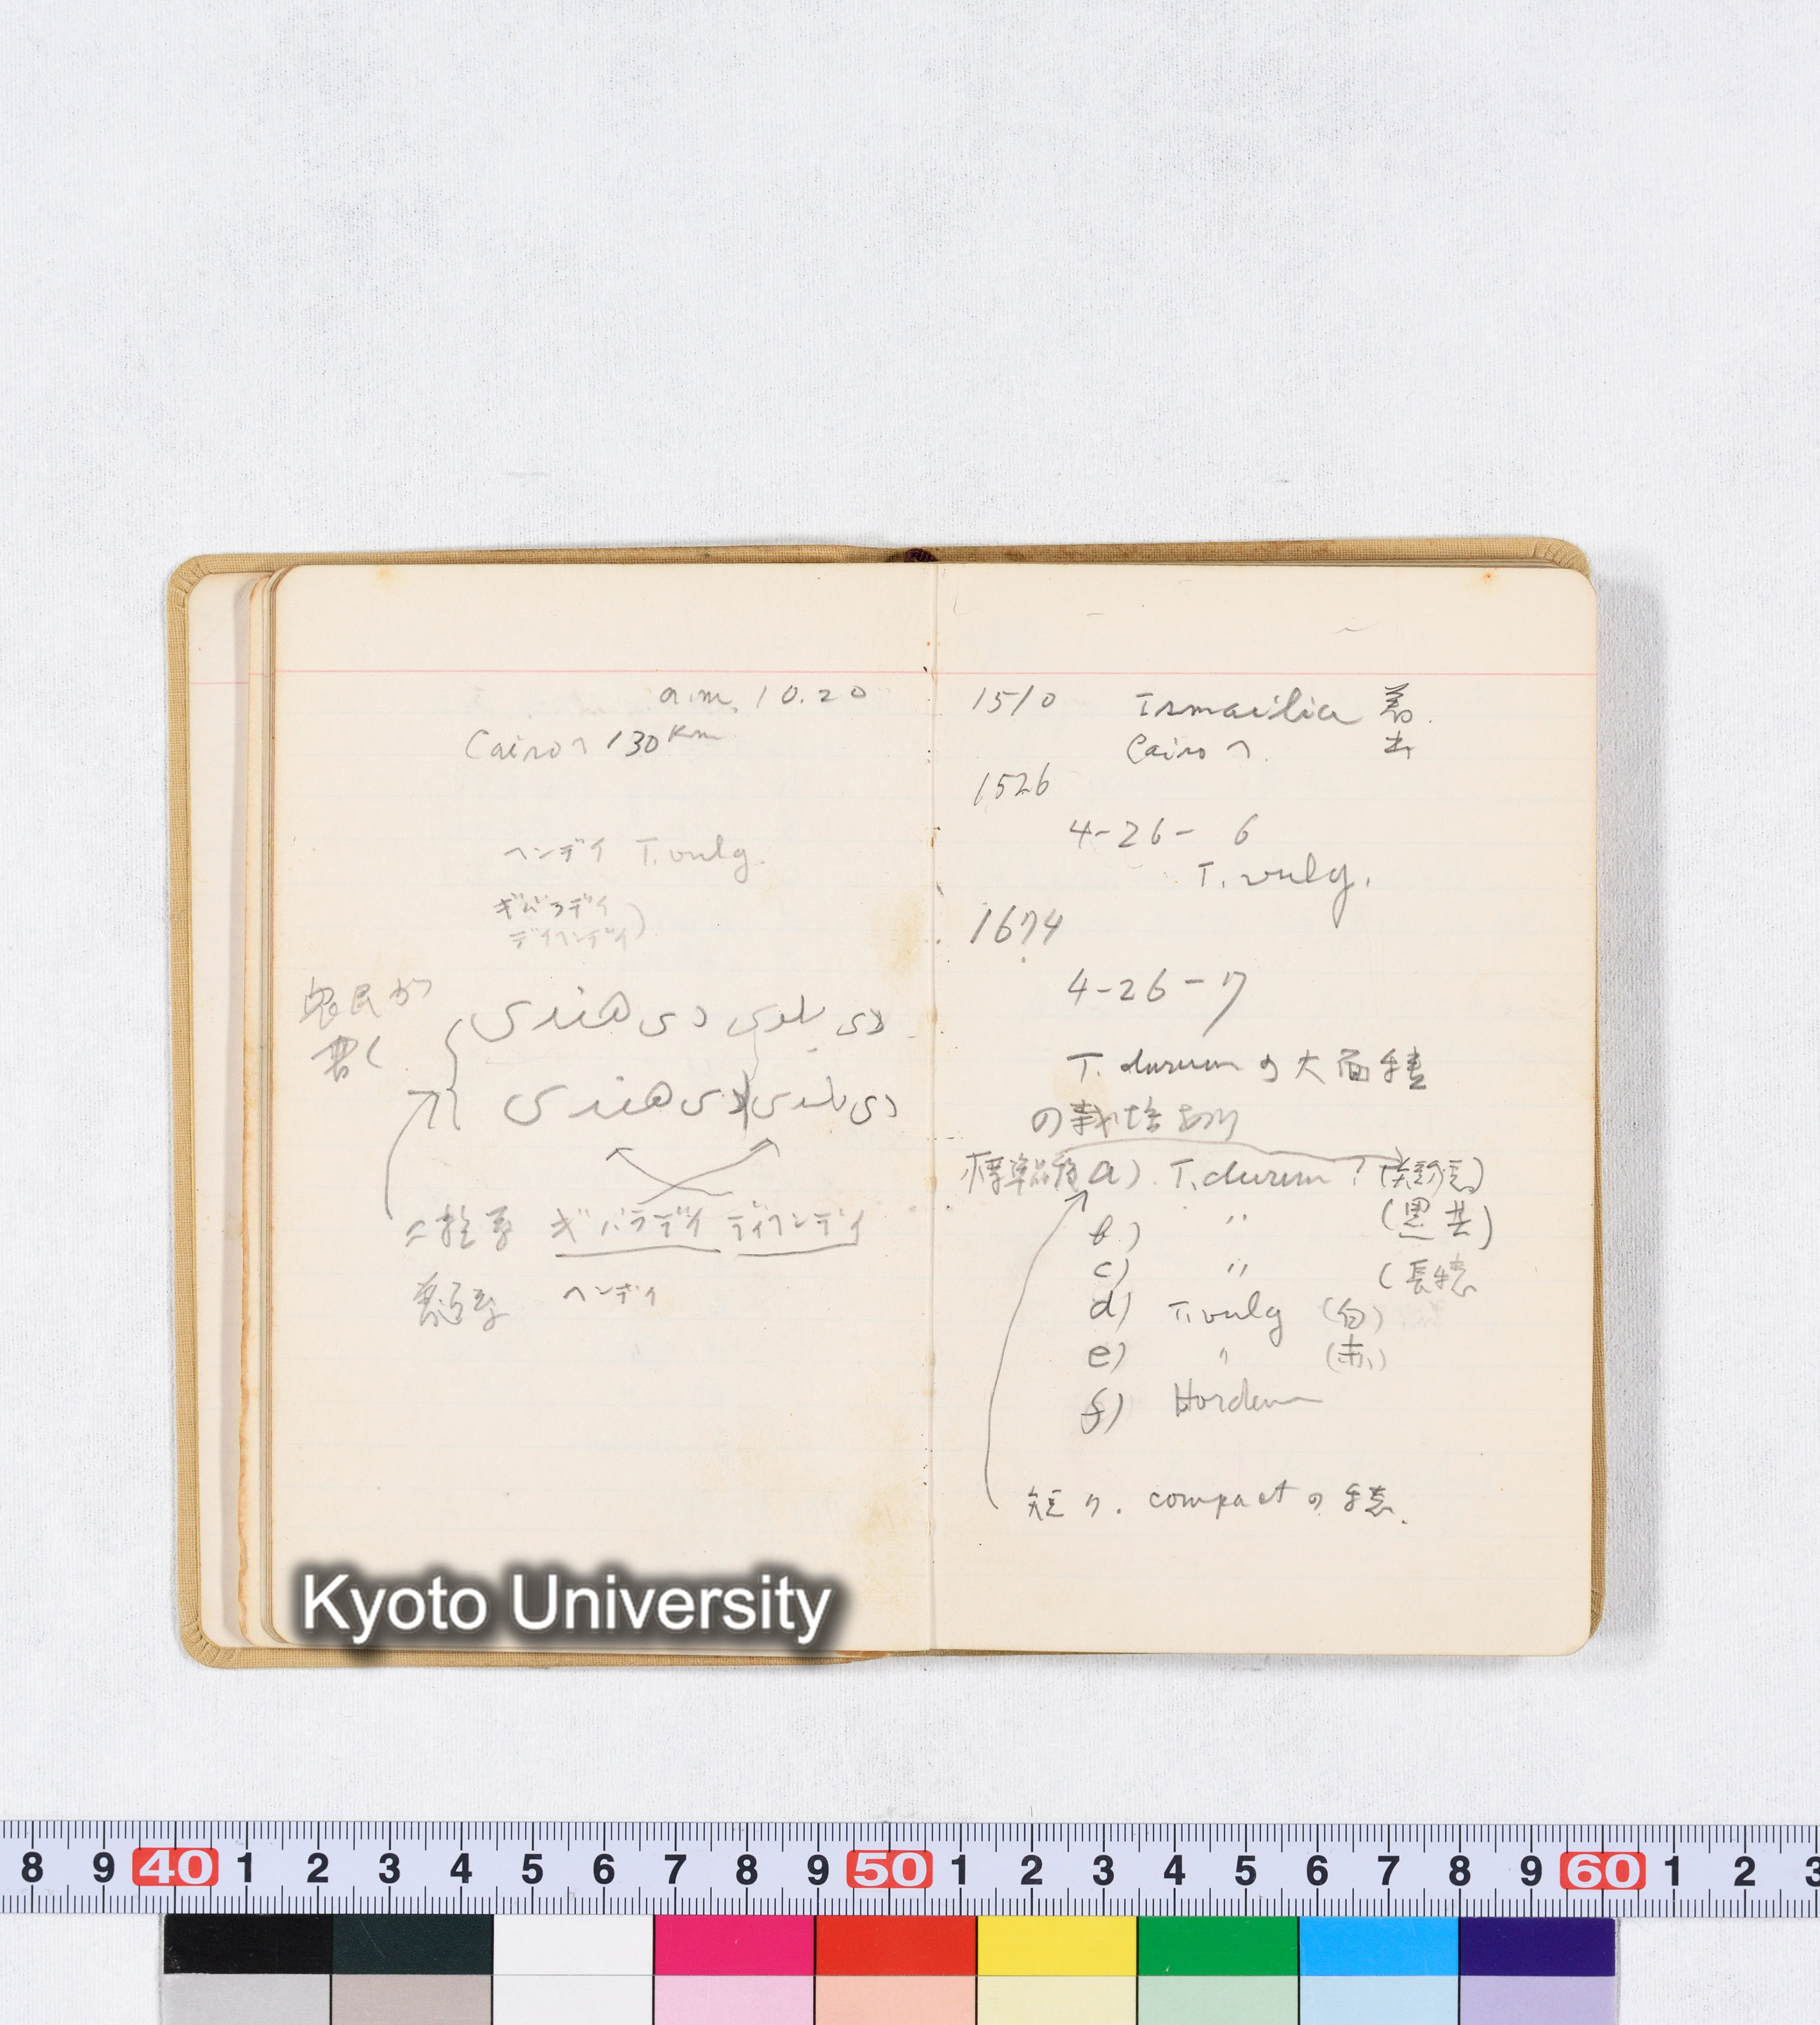 a.m. 10.20
Cairoへ 130 Km
ヘンデイ T. vulg.
ギバラデイ
デイヘンデイ)
農民が
書く
دى بلدى دى هندى
دى بلدى دى هندى
二粒系 ギバラデイ デイヘンデイ
普通系 ヘンデイ
1510 Ismailia 着.
Cairoへ. 出
1526
4-26-6
T. vulg.
1674
4-26-7
T. durumの大面積
の栽培あり
標準品種 a). T. durum? (短穂)
b) 〃 (黒芒)
c) 〃 (長穂
d) T. vulg (白)
e) 〃 (赤)
f) Hordeum
短ク. compactの穂.
Kyoto University
8 9 40 1 2 3 4 5 6 7 8 9 50 1 2 3 4 5 6 7 8 9 60 1 2 3